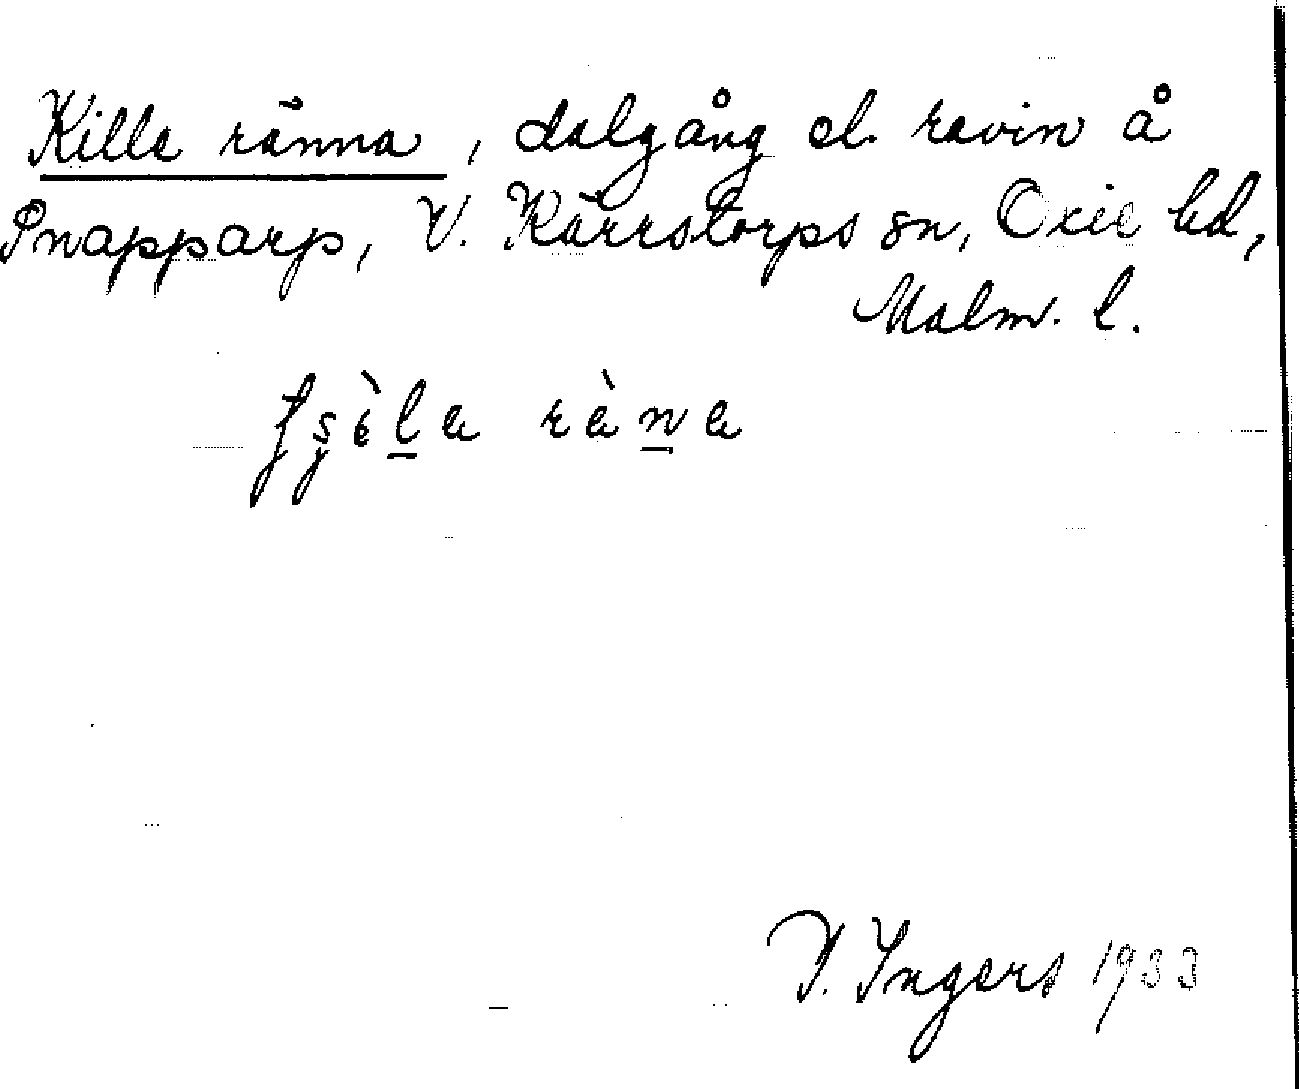 Killa ränna, dalgång el. ravin å
Pnapparp, V. Kärrstorps sn, Oxie hd,
Malm. l.
I. Ingers 1933